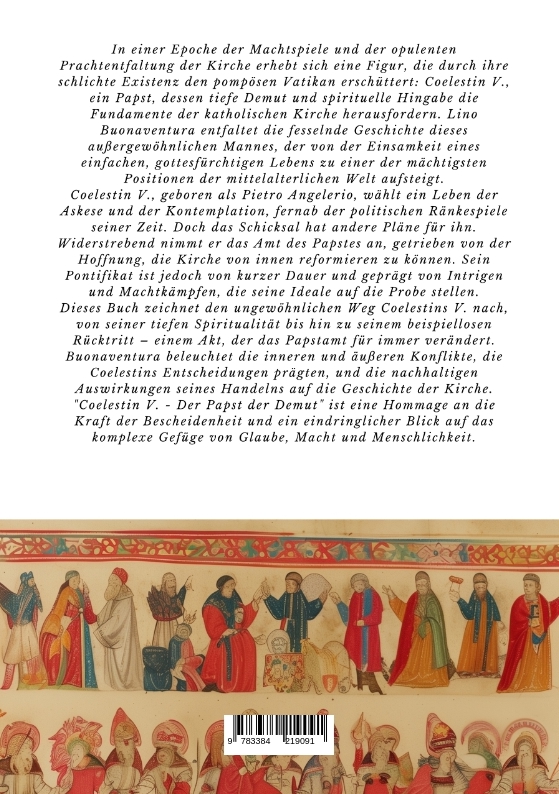 In einer Epoche der Machtspiele und der opulenten
Prachtentfaltung der Kirche erhebt sich eine Figur, die durch ihre
schlichte Existenz den pompösen Vatikan erschüttert: Coelestin V.,
ein Papst, dessen tiefe Demut und spirituelle Hingabe die
Fundamente der katholischen Kirche herausfordern. Lino
Buonaventura entfaltet die fesselnde Geschichte dieses
außergewöhnlichen Mannes, der von der Einsamkeit eines
einfachen, gottesfürchtigen Lebens zu einer der mächtigsten
Positionen der mittelalterlichen Welt aufsteigt.
Coelestin V., geboren als Pietro Angelerio, wählt ein Leben der
Askese und der Kontemplation, fernab der politischen Ränkespiele
seiner Zeit. Doch das Schicksal hat andere Pläne für ihn.
Widerstrebend nimmt er das Amt des Papstes an, getrieben von der
Hoffnung, die Kirche von innen reformieren zu können. Sein
Pontifikat ist jedoch von kurzer Dauer und geprägt von Intrigen
und Machtkämpfen, die seine Ideale auf die Probe stellen.
Dieses Buch zeichnet den ungewöhnlichen Weg Coelestins V. nach,
von seiner tiefen Spiritualität bis hin zu seinem beispiellosen
Rücktritt – einem Akt, der das Papstamt für immer verändert.
Buonaventura beleuchtet die inneren und äußeren Konflikte, die
Coelestins Entscheidungen prägten, und die nachhaltigen
Auswirkungen seines Handelns auf die Geschichte der Kirche.
"Coelestin V. - Der Papst der Demut" ist eine Hommage an die
Kraft der Bescheidenheit und ein eindringlicher Blick auf das
komplexe Gefüge von Glaube, Macht und Menschlichkeit.
9 783384 219091